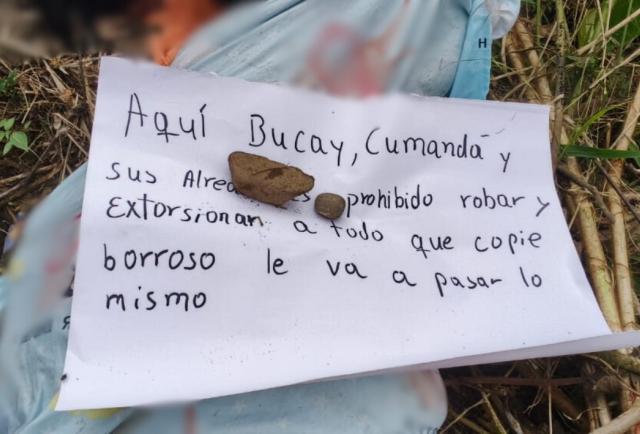 Aquí Bucay, Cumandá y
sus prohibido robar y
Extorsionar a todo que copie
borroso le va a pasar lo
mismo
H